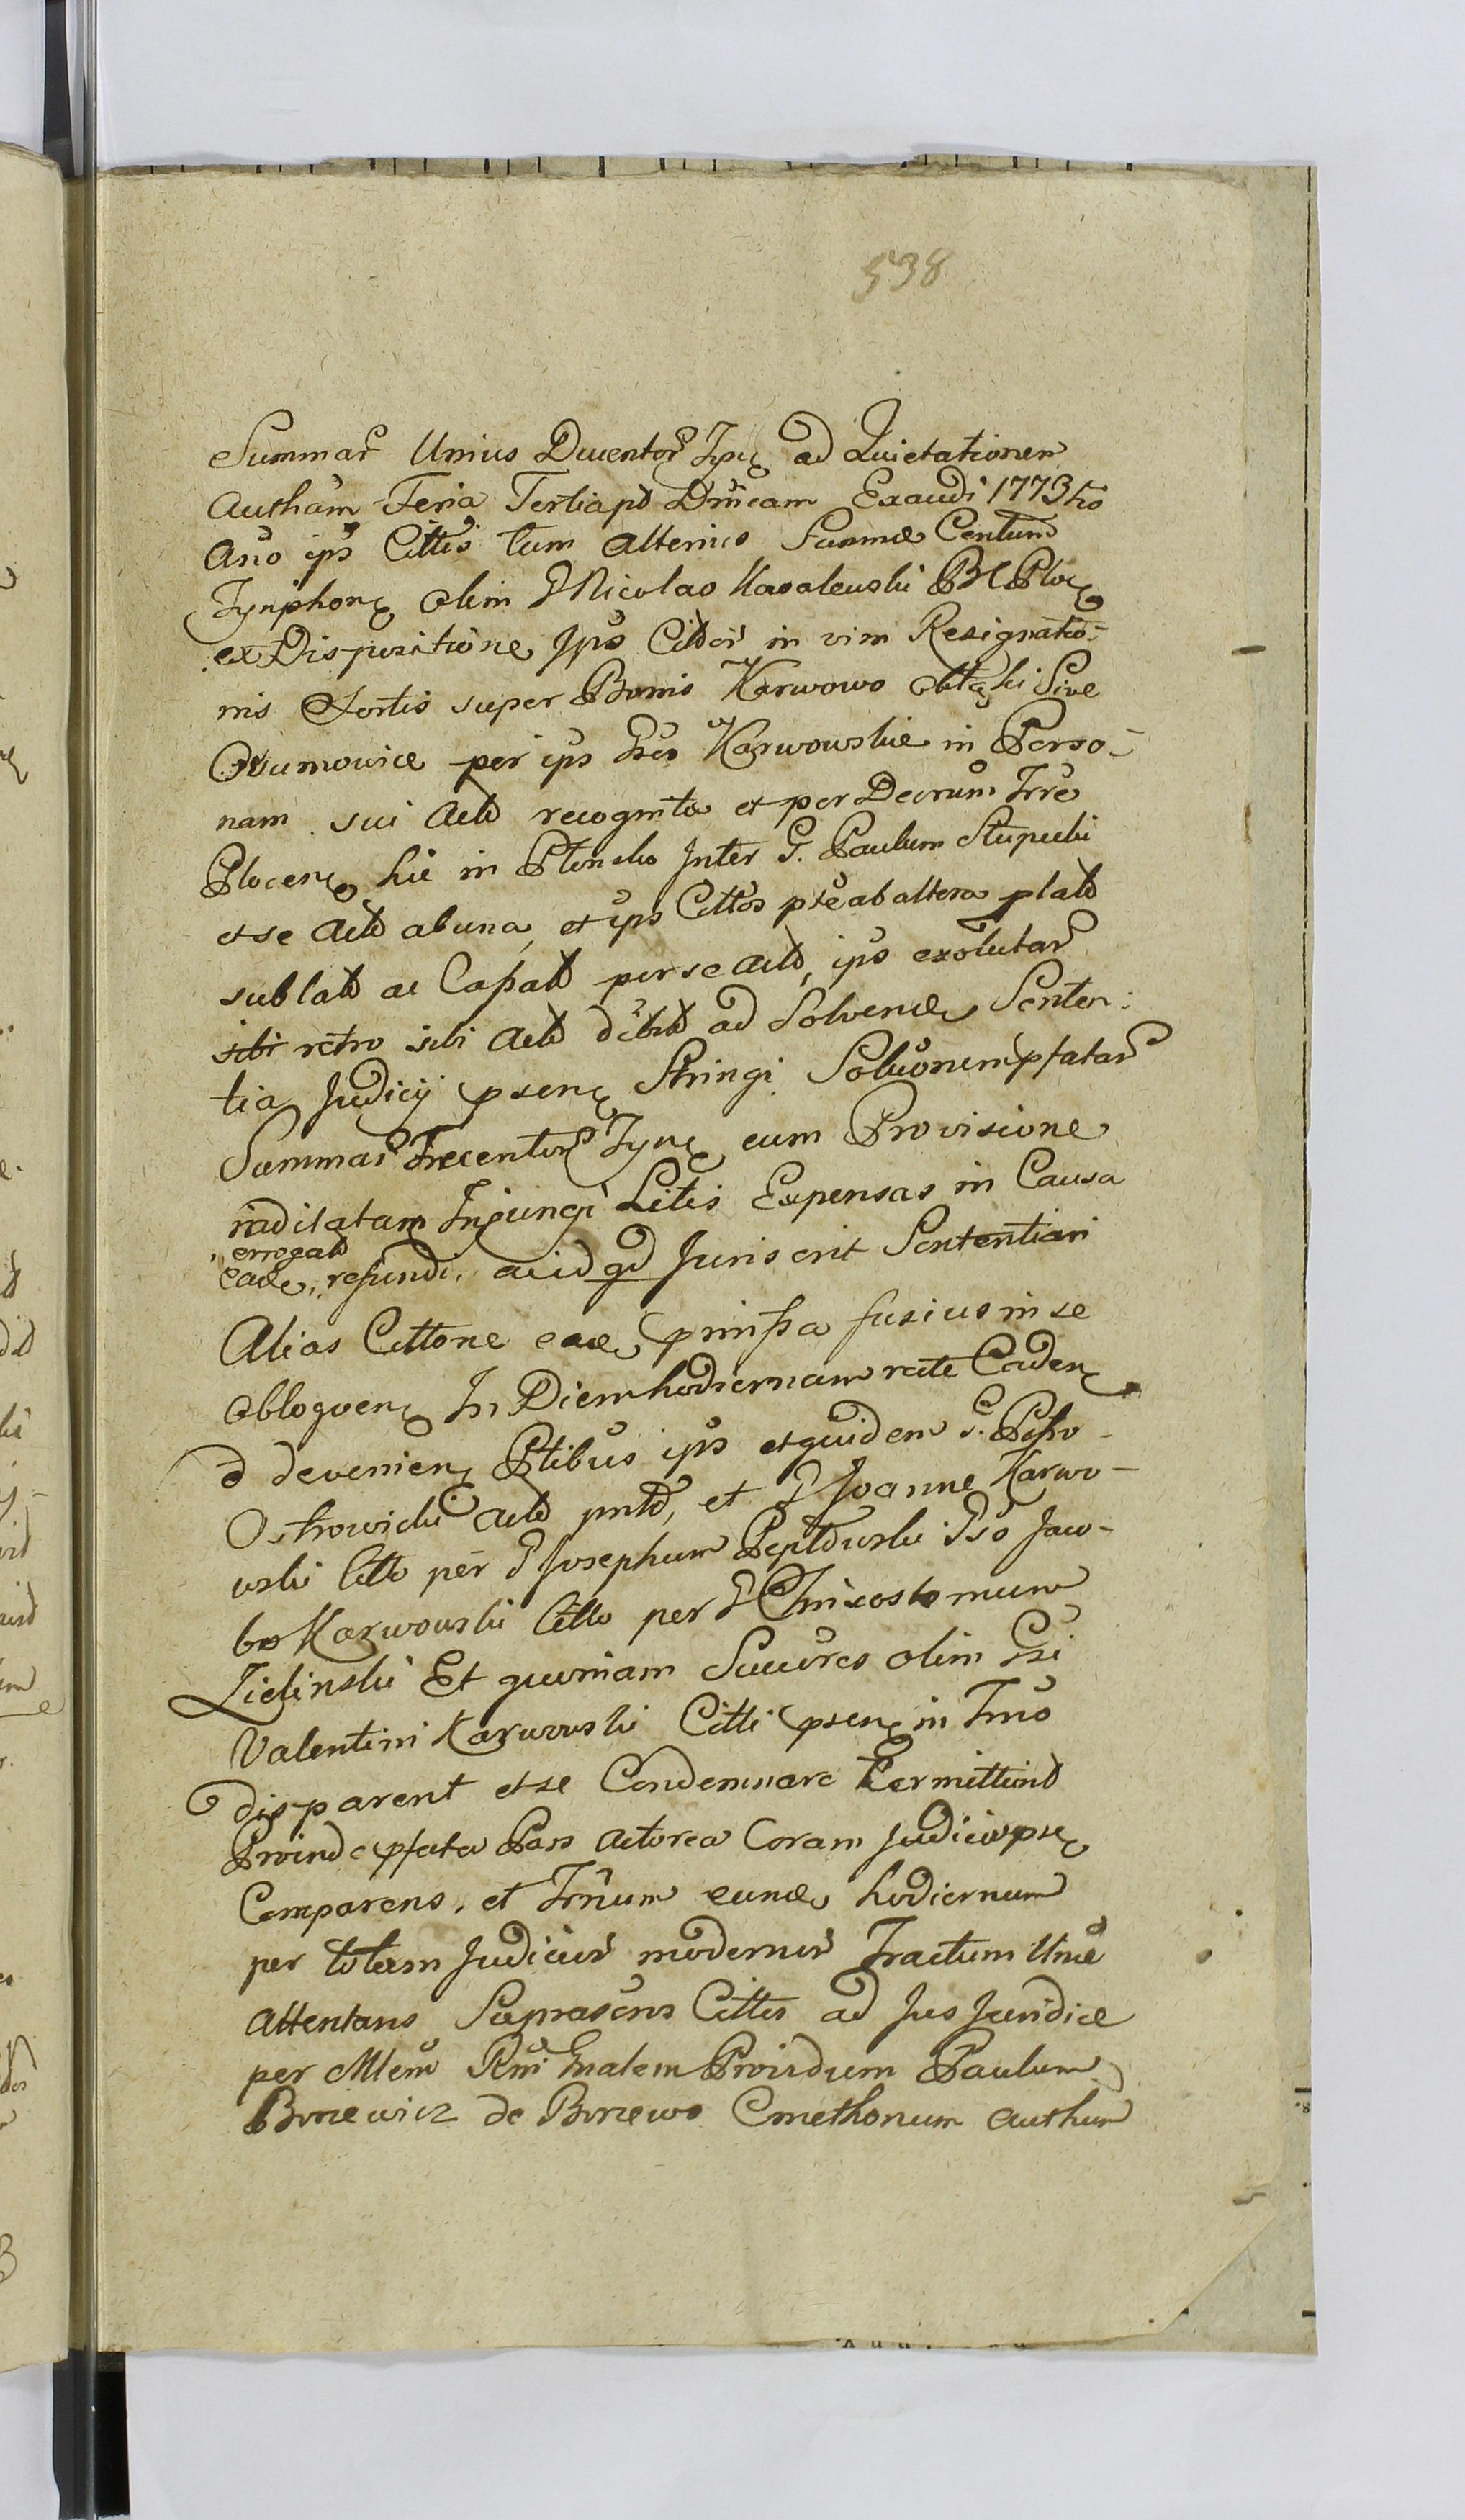 538
Summar Unius Ducentor Tyn ad Quietationem
Autham Feria Tertia pt Dnicam Exaudi 1773tio
Ano ips Cittis tum alterius Summæ Centum
Tynphon olim G Nicolao Kowalewski BC Ploc
ex Dispositione Ips Citto in vim Resignatio-
nis Sortis super Bonis Karwowo sive
per ips Gsos Karwowskie in Perso-
nam sui Acto recognita et per Decrum Trre
Plocen hic in Plonsko Inter G. Paulum Stupecki
et se Acto ab una, et ips Cittos pte ab altera plato
sublato ac Cassato per se acto, ips exolutar
sibi retro sibi Acto debito ad Solvend Senten-
tia Judicij psen Stringi Solvonem pfatar
Summar Trecentor Tyn cum Provisione
inditatam Injungi Litis Expensas in Causa
errogato
ead refundi. ac id qd Juris erit Sententiari
Alias Cittone ead pmissa fusius in se
obloquen In Diem hodiernam rate Caden
d devenien Ptibus ips et quidem G.
Ostrowicki acto pnto, et G Joanne Karwo-
wski Citto per G Josephum Peptowski Gso Jaco-
bo Karwowski Citto per G Chrizostomum
Zielinski Et quoniam Succres olim Gsi
Valentini Karwowski Citti psen in Trno
disparent et se Condemnare Permittunt
Proinde pfata Pars Actorea Coram Judicio pse
Comparens, et Trnum eund hodiernum
per totum Judicior modernor Tractum
attentans Suprascros Cittos ad Jus Juridice
per Mlem Rni Gnalem Providum Paulum
Borzewicz de Borzewo Cmethonum authum